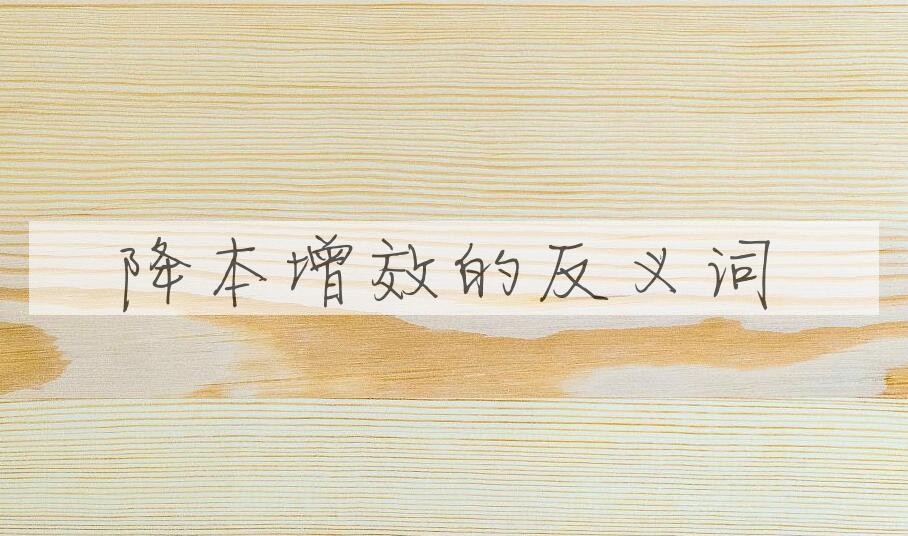 降本增效的反义词